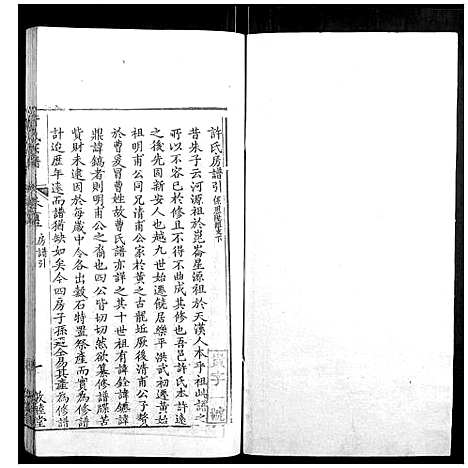 許氏房譜引
昔朱子云河源祖於崑崙星源祖於天漢人本乎祖此譜之
所以不容已於修且不得不曲成其修也吾邑許氏本許遠
之後先因新安人也越九世遷饒居樂平洪武初遷黃
祖明甫公同兄清甫公家於黃之古龍近厥後清甫公子贅
於曹爰冒曹姓故曹氏譜亦詳之其十世祖有諱銓諱鏸諱
鼎諱鎬者則明甫公之裔也皆切切然欲纂修譜牒苦
貲財未逮因於每歲中令各出穀石特置祭產而實為修譜
計迨歷年遠而譜猶缺如矣今四房子孫
房譜引
敦睦堂